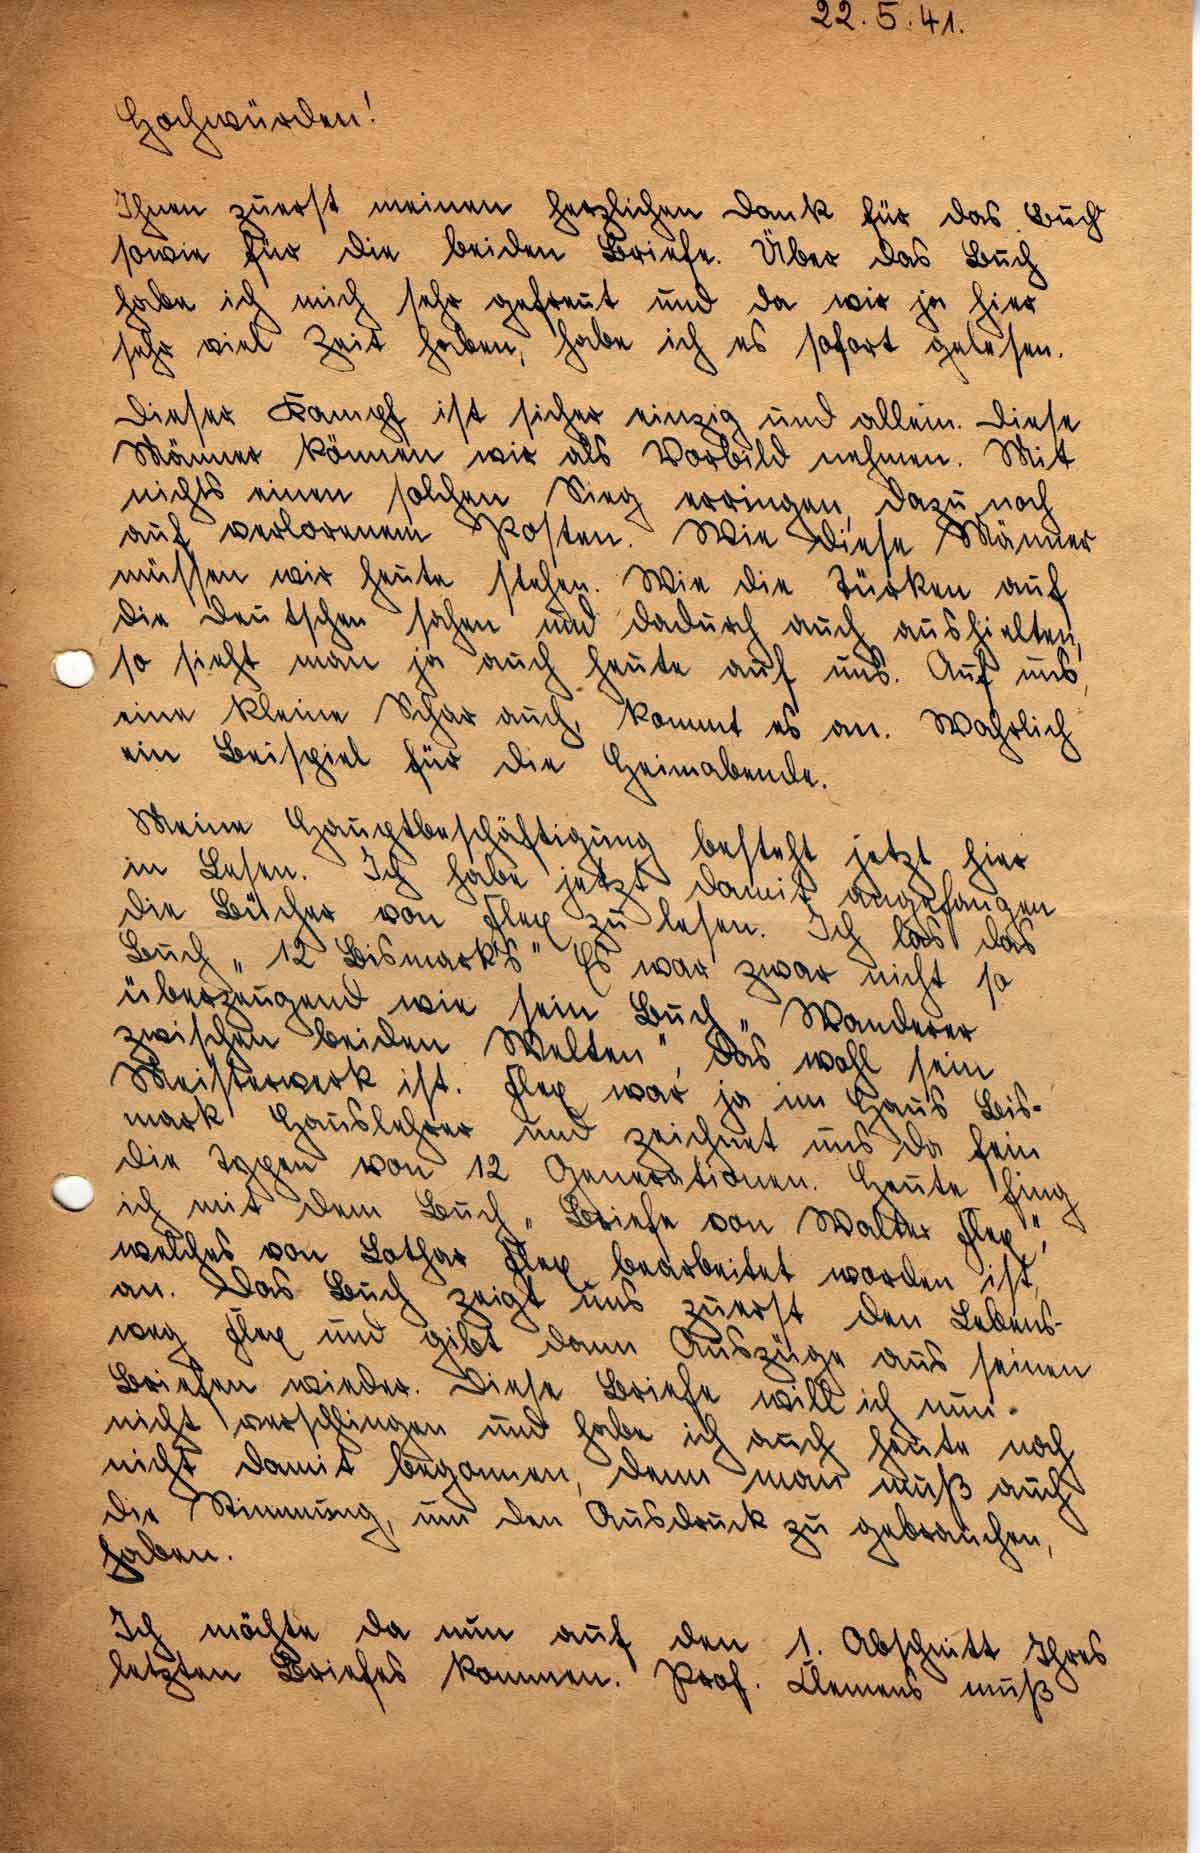 22.5.41.
Hochwürden!
Ihnen zuerst meinen herzlichen Dank für das Buch
sowie für die beiden Briefe. Über das Buch
habe ich mich sehr gefreut und da wir ja hier
sehr viel Zeit haben, habe ich es sofort gelesen.
Dieser Kampf ist sicher einzig und allein. Diese
Männer können wir als Vorbild nehmen. Mit
nichts einen solchen Sieg erringen, dazu noch
auf verlorenem Posten. Wie diese Männer
müssen wir heute stehen. Wie die Türken auf
die Deutschen sahen und dadurch auch aushielten,
so sieht man ja auch heute auf uns. Auf uns,
eine kleine Schar auch, kommt es an. Wahrlich
ein Beispiel für die Heimabende.
Meine Hauptbeschäftigung besteht jetzt hier
in Lesen. Ich habe jetzt damit angefangen
die Bücher von Flex zu lesen. Ich las das
Buch „12 Bismarks" Es war zwar nicht so
überzeugend wie sein Buch „Wanderer
zwischen beiden Welten", das wohl sein
Meisterwerk ist. Flex war ja im Haus Bis-
mark Hauslehrer und zeichnet uns da fein
die Typen von 12 Generationen. Heute fing
ich mit dem Buch „Briefe von Walter Flex",
welches von Lothar Flex bearbeitet worden ist,
an. Das Buch zeigt uns zuerst den Lebens-
weg Flex und gibt dann Auszüge aus seinen
Briefen wieder. Diese Briefe will ich nun
nicht verschlingen und habe ich auch heute noch
nicht damit begonnen, denn man muß auch
die Stimmung, um den Ausdruck zu gebrauchen,
haben.
Ich möchte da nun auf den 1. Abschnitt Ihres
letzten Briefes kommen. Prof. Clemens muß